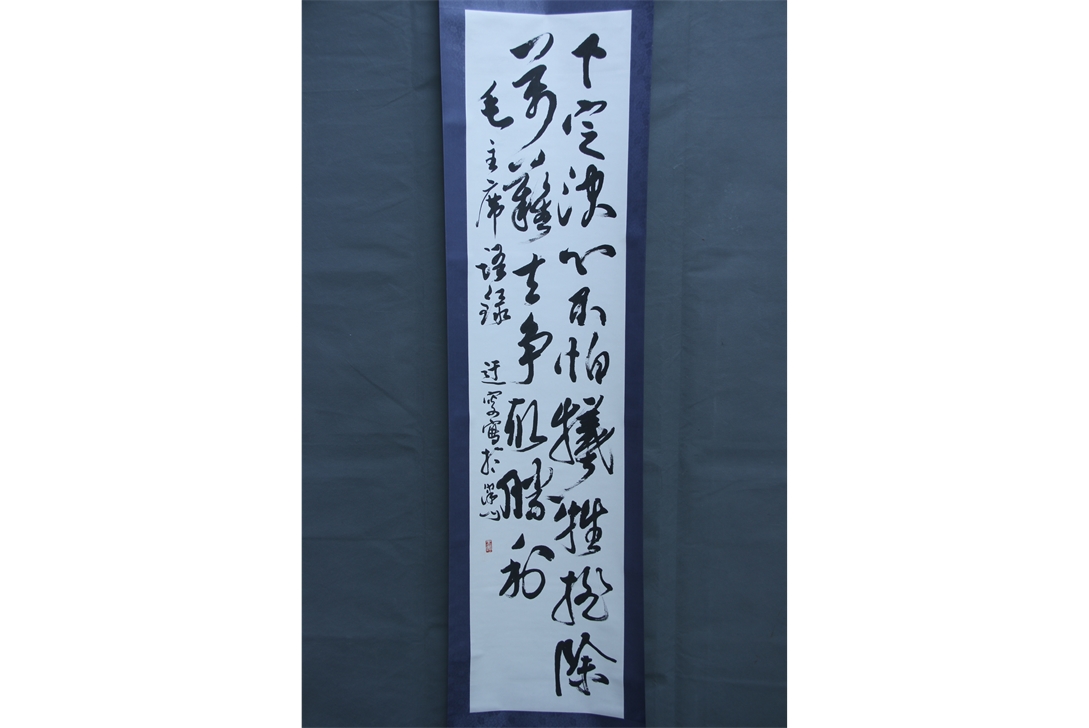 下定決心不怕犧牲排除
萬難去争取勝利
毛主席語録 寫於